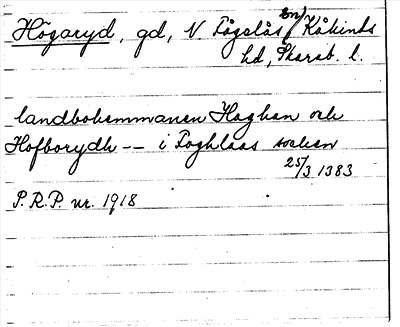 Högaryd, gd, V. Fågelås sn, Kåkinds
hd, Skarab. l.
landbohemmanen Haghan och
Hofborydh -- i Foghlaas socken
25/3 1383
P.R.P. nr. 1918